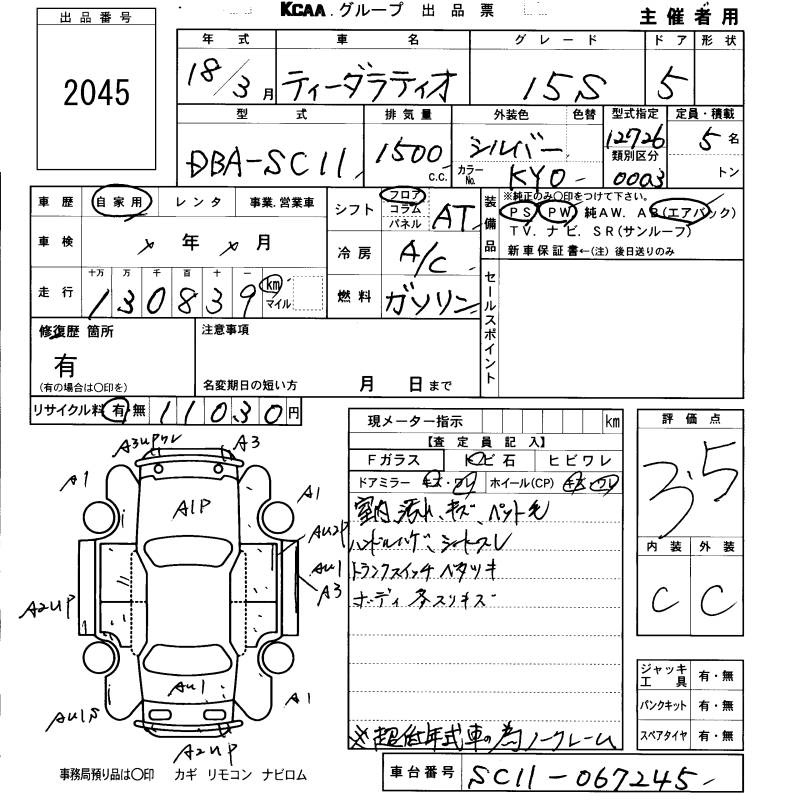 KCAA.グループ 出品票
主催者用
出品番号
2045
年式 車名 グレード ドア 形状
18/3月 ティーダラティオ 15S 5
型式 排気量 外装色 色替 型式指定 定員・積載
DBA-SC11 1500 c.c. シルバー カラーNo. KY0 12726 類別区分 0003 5名 トン
車歴 自家用 レンタ 事業.営業車
シフト フロア コラム パネル AT
装備品 ※純正のみ〇印をつけて下さい。
PS PW 純AW. AB(エアバック)
TV. ナビ. SR(サンルーフ)
新車保証書←(注) 後日送りのみ
車検 × 年 × 月
冷房 A/C
走行 十万 万 千 百 十 一
130839 km マイル
燃料 ガソリン
セールスポイント
修復歴 箇所
有
(有の場合は〇印を)
注意事項
名変期日の短い方 月 日まで
リサイクル料 有・無 11030円
現メーター指示 km
【査定員記入】
Fガラス トビ石 ヒビワレ
ドアミラー キズ・ワレ ホイール(CP) キズ・ワレ
室内汚れ、キズ、ペット毛
ハンドルハゲ、シートスレ
トランクスイッチベタツキ
ボディ多スリキズ
※超低年式車の為ノークレーム
評価点
3.5
内装 外装
C C
A3UPワレ A3
A1 A1
A1P
AU2P
AU1
A3
A2UP
AU1
AU1S A1
A2UP
ジャッキ工具 有・無
パンクキット 有・無
スペアタイヤ 有・無
事務局預り品は〇印 カギ リモコン ナビロム
車台番号 SC11-067245